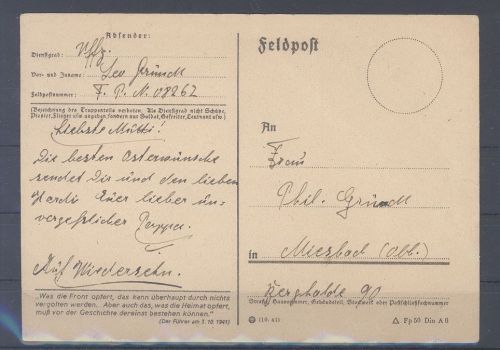 Absender:
Dienstgrad: Uffz.
Vor- und Zuname: Leo Gründl
Feldpostnummer: F. P. N. 08262
(Bezeichnung des Truppenteils verboten. Als Dienstgrad nicht Schütze,
Pionier, Flieger usw. angeben, sondern nur Soldat, Gefreiter, Leutnant usw.)
Liebste Mutti!
Die besten Osterwünsche
sendet Dir und den lieben
Hardi Euer lieber un-
vergeßlicher Pappa.
Auf Wiedersehn.
„Was die Front opfert, das kann überhaupt durch nichts
vergolten werden. Aber auch das, was die Heimat opfert,
muß vor der Geschichte dereinst bestehen können."
(Der Führer am 3. 10. 1941)
Feldpost
An
Frau
Phil. Gründl
in Miesbach (Obb.)
Berghalde 90
Straße, Hausnummer, Gebäudeteil, Stockwerk oder Postschließfachnummer
(10. 41)
Fp 50 Din A 6